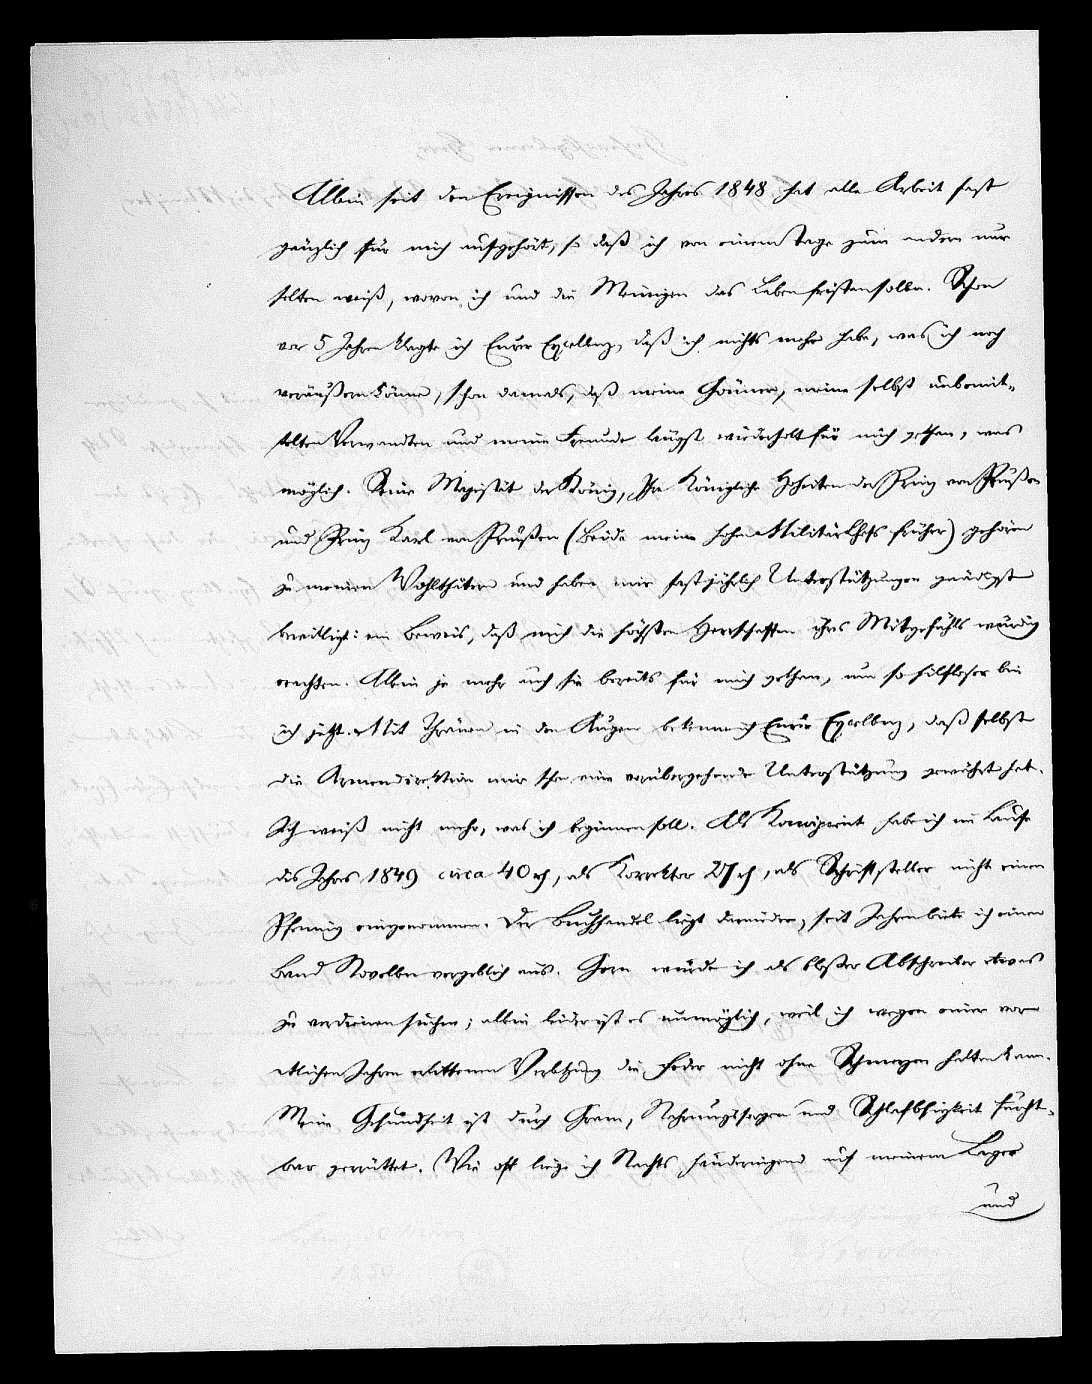 Allein seit den Ereignissen des Jahres 1848 hat alle Arbeit fast
gänzlich für mich aufgehört, so daß ich von einem Tage zum andern nur
selten weiß, wovon ich und die Meinigen das Leben fristen sollen. Schon
vor 5 Jahren klagte ich Eurer Excellenz, daß ich nichts mehr habe, was ich noch
veräußern könne, schon damals, daß meine Gönner, meine selbst unbemit-
telten Verwandten und meine Freunde längst wiederholt für mich gethan, was
möglich. Seine Majestät der König, Ihre Königliche Hoheiten der Prinz von Preußen
und Prinz Karl von Preußen (Beide meine hohen Militärchefs früher) gehören
zu meinen Wohlthätern und haben mir fast jährlich Unterstützungen gnädigst
bewilligt: ein Beweis, daß mich die höchsten Herrschaften ihres Mitgefühls würdig
erachten. Allein je mehr auch sie bereits für mich gethan, um so hilfloser bin
ich jetzt. Mit Thränen in den Augen bekenne ich Eurer Excellenz, daß selbst
die Armendirektion mir schon eine vorübergehende Unterstützung gewährt hat.
Ich weiß nicht mehr, was ich beginnen soll. Als Komponist habe ich im Laufe
des Jahres 1849 circa 40 rh, als Korrektor 27 rh, als Schriftsteller nicht einen
Pfennig eingenommen. Der Buchhandel liegt darnieder, seit Jahren biete ich einen
Band Novellen vergeblich aus. Gern würde ich als bloßer Abschreiber etwas
zu verdienen suchen; allein leider ist es unmöglich, weil ich wegen einer vor
etlichen Jahren erlittenen Verletzung die Feder nicht ohne Schmerzen halten kann.
Meine Gesundheit ist durch Gram, Nahrungssorgen und Schlaflosigkeit furcht-
bar zerrüttet. Wie oft liege ich Nachts händeringend auf meinem Lager
und